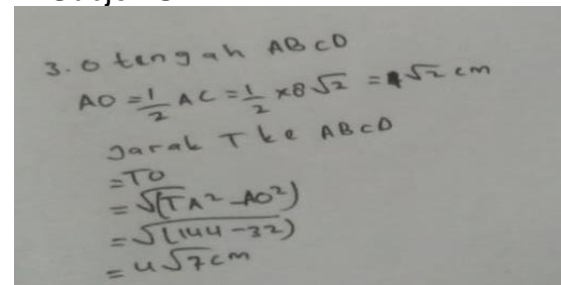 3. O tengah ABCD
AO = 1/2 AC = 1/2 x 8√2 = 4√2 cm
Jarak T ke ABCD
= TO
= √(TA² - AO²)
= √(144 - 32)
= 4√7 cm